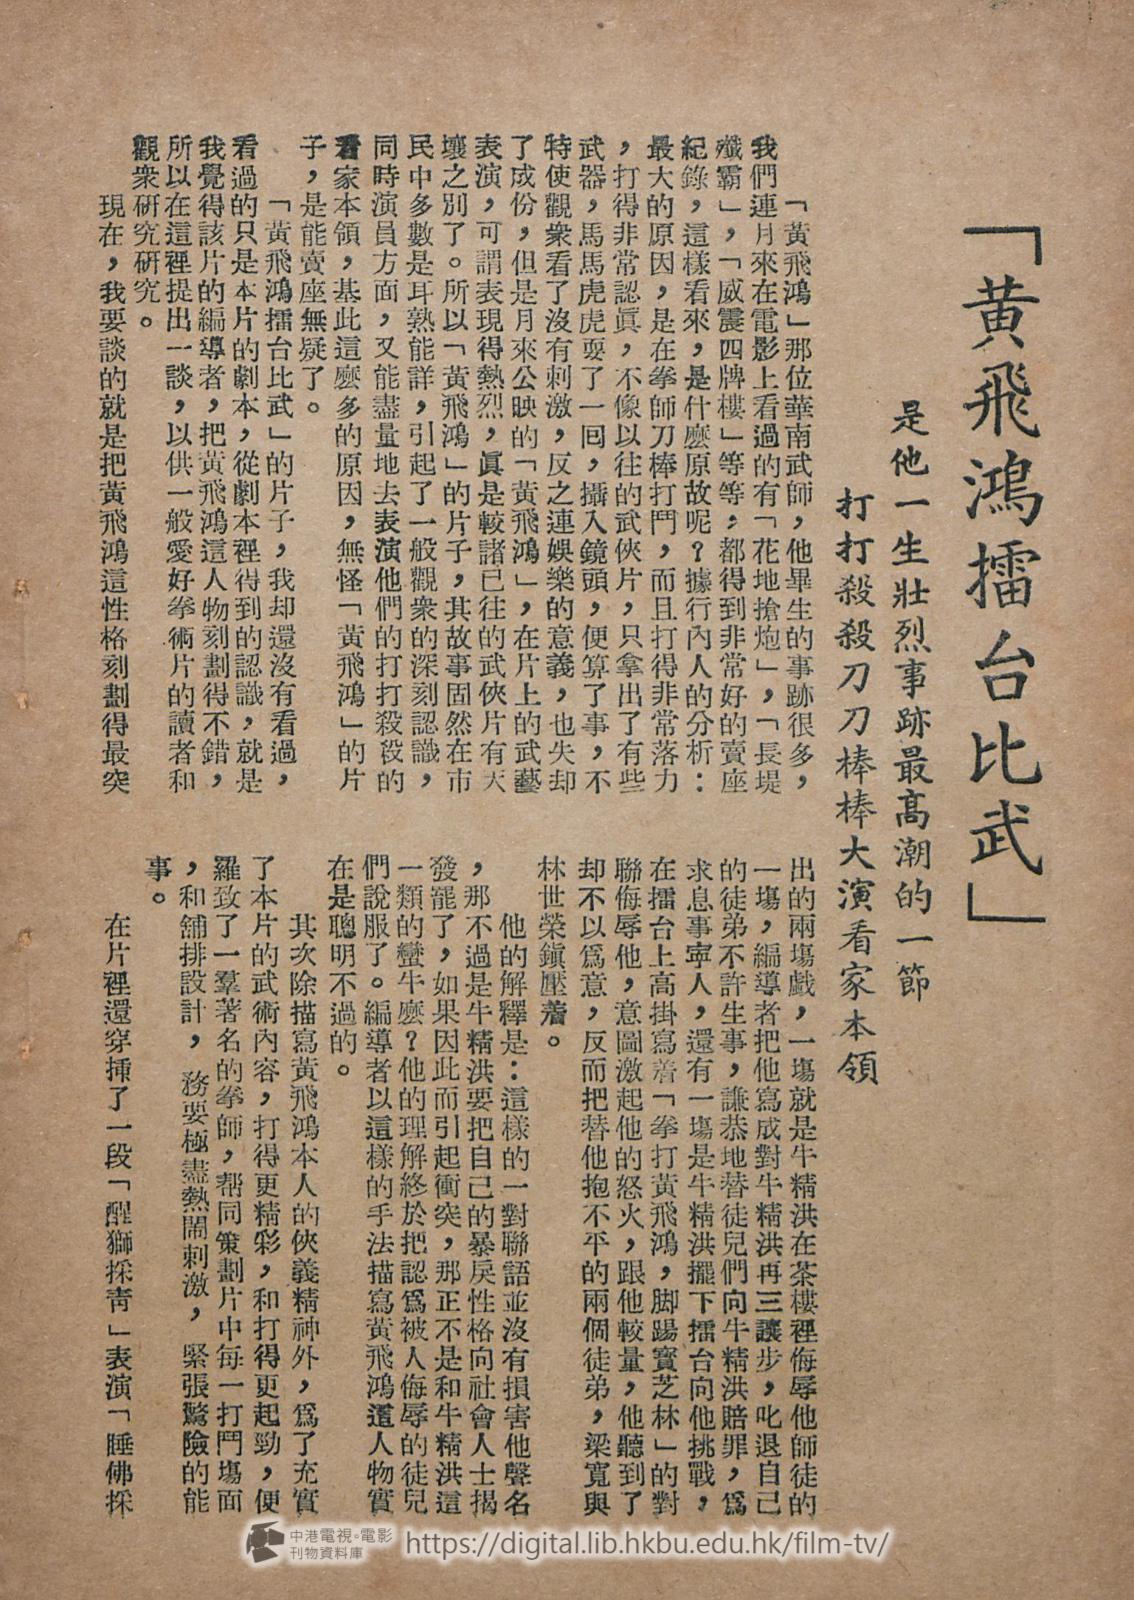 「黃飛鴻擂台比武」
是他一生壯烈事跡最高潮的一節
打打殺殺刀刀棒棒大演看家本領
「黃飛鴻」那位華南武師，他畢生的事跡很多，
我們連月來在電影上看過的有「花地搶炮」，「長堤
殲霸」，「威震四牌樓」等等，都得到非常好的賣座
紀錄，這樣看來，是什麽原故呢？據行內人的分析：
最大的原因，是在拳師刀棒打鬥，而且打得非常落力
，打得非常認眞，不像以往的武俠片，只拿出了有些
武器，馬馬虎虎耍了一囘，攝入鏡頭，便算了事，不
特使觀衆看了沒有刺激，反之連娛樂的意義，也失却
了成份，但是月來公映的「黃飛鴻」，在片上的武藝
表演，可謂表現得熱烈，眞是較諸已往的武俠片有天
壤之別了。所以「黃飛鴻」的片子，其故事固然在市
民中多數是耳熟能詳，引起了一般觀衆的深刻認識，
同時演員方面，又能盡量地去表演他們的打打殺殺的
看家本領，基此這麽多的原因，無怪「黃飛鴻」的片
子，是能賣座無疑了。
「黃飛鴻擂台比武」的片子，我却還沒有看過，
看過的只是本片的劇本，從劇本裡得到的認識，就是
我覺得該片的編導者，把黃飛鴻這人物刻劃得不錯，
所以在這裡提出一談，以供一般愛好拳術片的讀者和
觀衆研究研究。
現在，我要談的就是把黃飛鴻這性格刻劃得最突
出的兩塲戲，一塲就是牛精洪在茶樓裡侮辱他師徒的
一塲，編導者把他寫成對牛精洪再三讓步，叱退自己
的徒弟不許生事，謙恭地替徒兒們向牛精洪賠罪，爲
求息事寧人，還有一塲是牛精洪擺下擂台向他挑戰，
在擂台上高掛寫着「拳打黃飛鴻，脚踢寶芝林」的對
聯侮辱他，意圖激起他的怒火，跟他較量，他聽到了
却不以爲意，反而把替他抱不平的兩個徒弟，梁寬與
林世榮鎭壓着。
他的解釋是：這樣的一對聯語並沒有損害他聲名
，那不過是牛精洪要把自己的暴戾性格向社會人士揭
發罷了，如果因此而引起衝突，那正不是和牛精洪這
一類的蠻牛麽？他的理解終於把認爲被人侮辱的徒兒
們說服了。編導者以這樣的手法描寫黃飛鴻這人物實
在是聰明不過的。
其次除描寫黃飛鴻本人的俠義精神外，爲了充實
了本片的武術內容，打得更精彩，和打得更起勁，便
羅致了一羣著名的拳師，幫同策劃片中每一打鬥塲面
，和舖排設計，務要極盡熱鬧刺激，緊張驚險的能
事。
在片裡還穿揷了一段「醒獅採靑」表演「睡佛採
中港電視·電影
刊物資料庫
https://digital.lib.hkbu.edu.hk/film-tv/